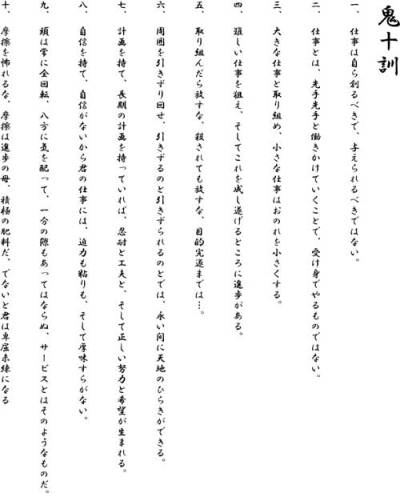 鬼十訓
一、仕事は自ら創るべきで、与えられるべきではない。
二、仕事とは、先手先手と働きかけていくことで、受け身でやるものではない。
三、大きな仕事と取り組め、小さな仕事はおのれを小さくする。
四、難しい仕事を狙え、そしてこれを成し遂げるところに進歩がある。
五、取り組んだら放すな、殺されても放すな、目的完遂までは…。
六、周囲を引きずり回せ、引きずるのと引きずられるのとでは、永い間に天地のひらきができる。
七、計画を持て、長期の計画を持っていれば、忍耐と工夫と、そして正しい努力と希望が生まれる。
八、自信を持て、自信がないから君の仕事には、迫力も粘りも、そして厚味すらがない。
九、頭は常に全回転、八方に気を配って、一分の隙もあってはならぬ、サービスとはそのようなものだ。
十、摩擦を怖れるな、摩擦は進歩の母、積極の肥料だ、でないと君は卑屈未練になる